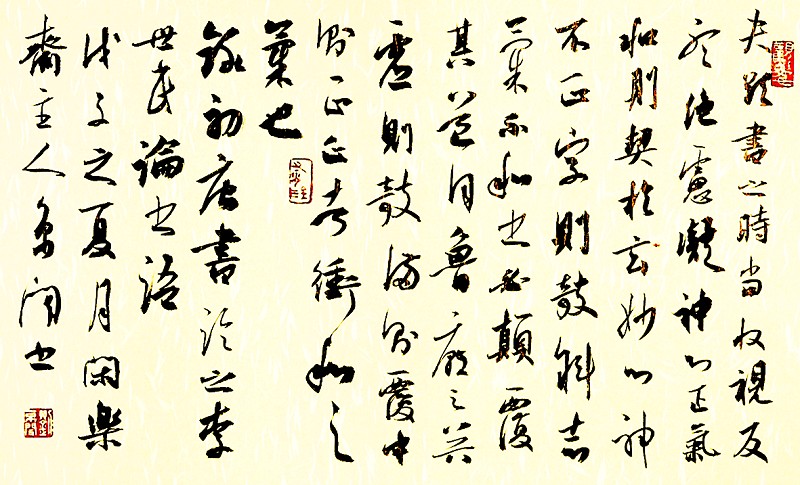 夫欲書之時当收視反
听絶慮凝神心正氣
和則契於玄妙心神
不正字則敧斜志
氣不和書必顛覆
其道同魯廟之器
虚則敧满則覆中
則正正者衝和之
也
錄初唐書論之李
世民論書語
戊子之夏月閑樂
齋主人書